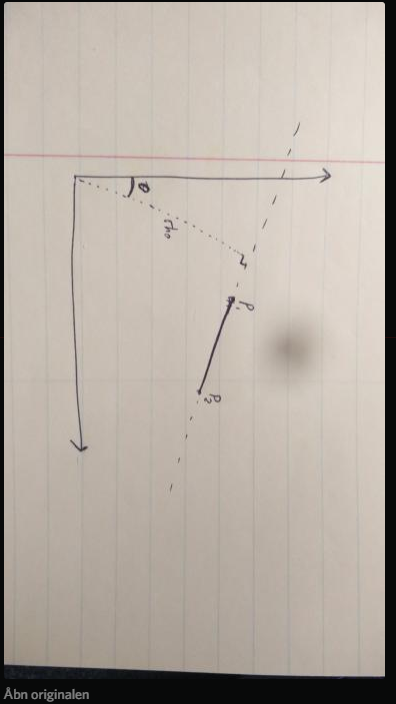 θ
rho
P1
P2
Åbn originalen